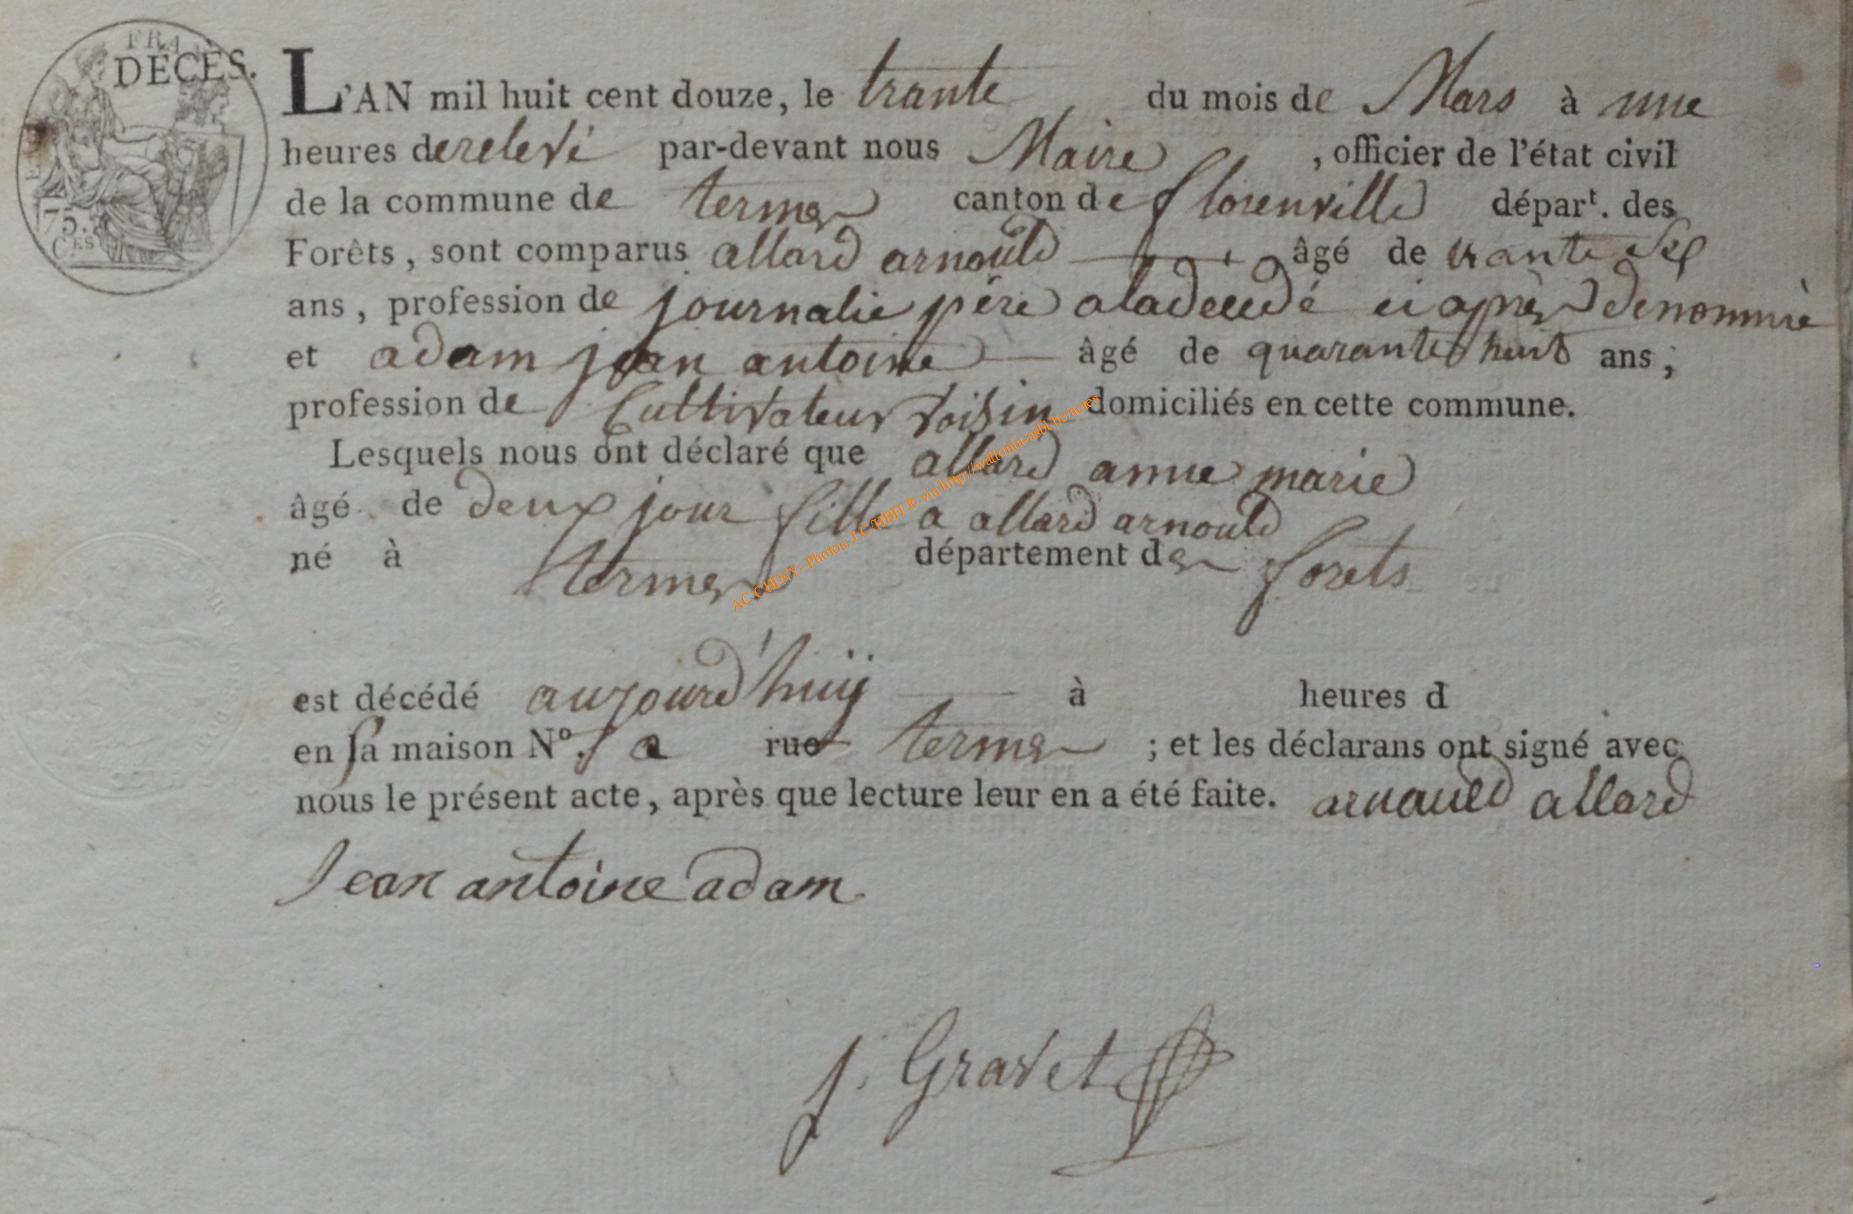 FRAN
DÉCÈS.
75.
C.ES
L'AN mil huit cent douze, le trante du mois de Mars à une
heures de relevé par-devant nous Maire , officier de l'état civil
de la commune de termes canton de florenville départ. des
Forêts, sont comparus allard arnould âgé de trante sep
ans, profession de journalie père a la decedé ci après denommé
et adam jean antoine âgé de quarante huit ans ;
profession de Cultivateur voisin domiciliés en cette commune.
Lesquels nous ont déclaré que allard anne marie
âgé de deux jour fille a allard arnould
né à termes département des forets
est décédé aujourd'huij à heures d
en sa maison N°. a rue termes ; et les déclarans ont signé avec
nous le présent acte, après que lecture leur en a été faite. arnauld allard
Jean antoine adam
j. Gravet